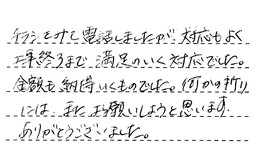 チラシを見て電話しましたが 対応もよく
工事終了まで 満足のいく対応でした。
金額も納得いくものでした。何かの折り
には、また お願いしようと思います
ありがとうございました。